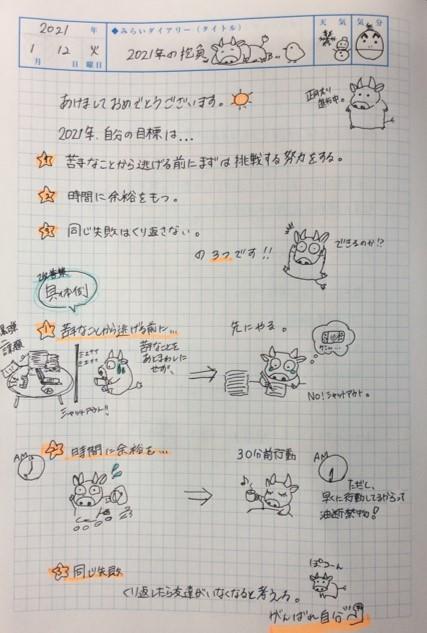 2021 年
1 月 12 日 火 曜日
◆みらいダイアリー（タイトル）
2021年の抱負
天気
気分
あけましておめでとうございます。
正月太り
進行中。
2021年、自分の目標は...
1 苦手なことから逃げる前にまずは挑戦する努力をする。
2 時間に余裕をもつ。
3 同じ失敗はくり返さない。
の3つです!!
できるのか!?
改善策
具体例
1 苦手なことから逃げる前に...
先にやる。
勉強
課題
苦手なことを
あとまわしに
せず、
シャットアウト!!
NO!シャットアウト。
2 時間に余裕を...
30分前行動
AM
AM
ただし、
早くに行動してるからって
油断禁物!
3 同じ失敗
くり返したら友達がいなくなると考えろ。
ぽつーん
がんばれ自分